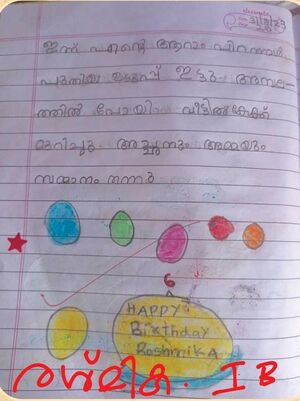 ഇന്ന് എന്റെ ആറാം പിറന്നാൾ
പുതിയ ഉടുപ്പ് ഇട്ടു. അമ്പല-
ത്തിൽ പോയി. വീട്ടിൽ കേക്ക്
മുറിച്ചു. അച്ഛനും അമ്മയും
സമ്മാനം തന്നു.
6
HAPPY
Birthday
Roshmika
രശ്മിക. I B